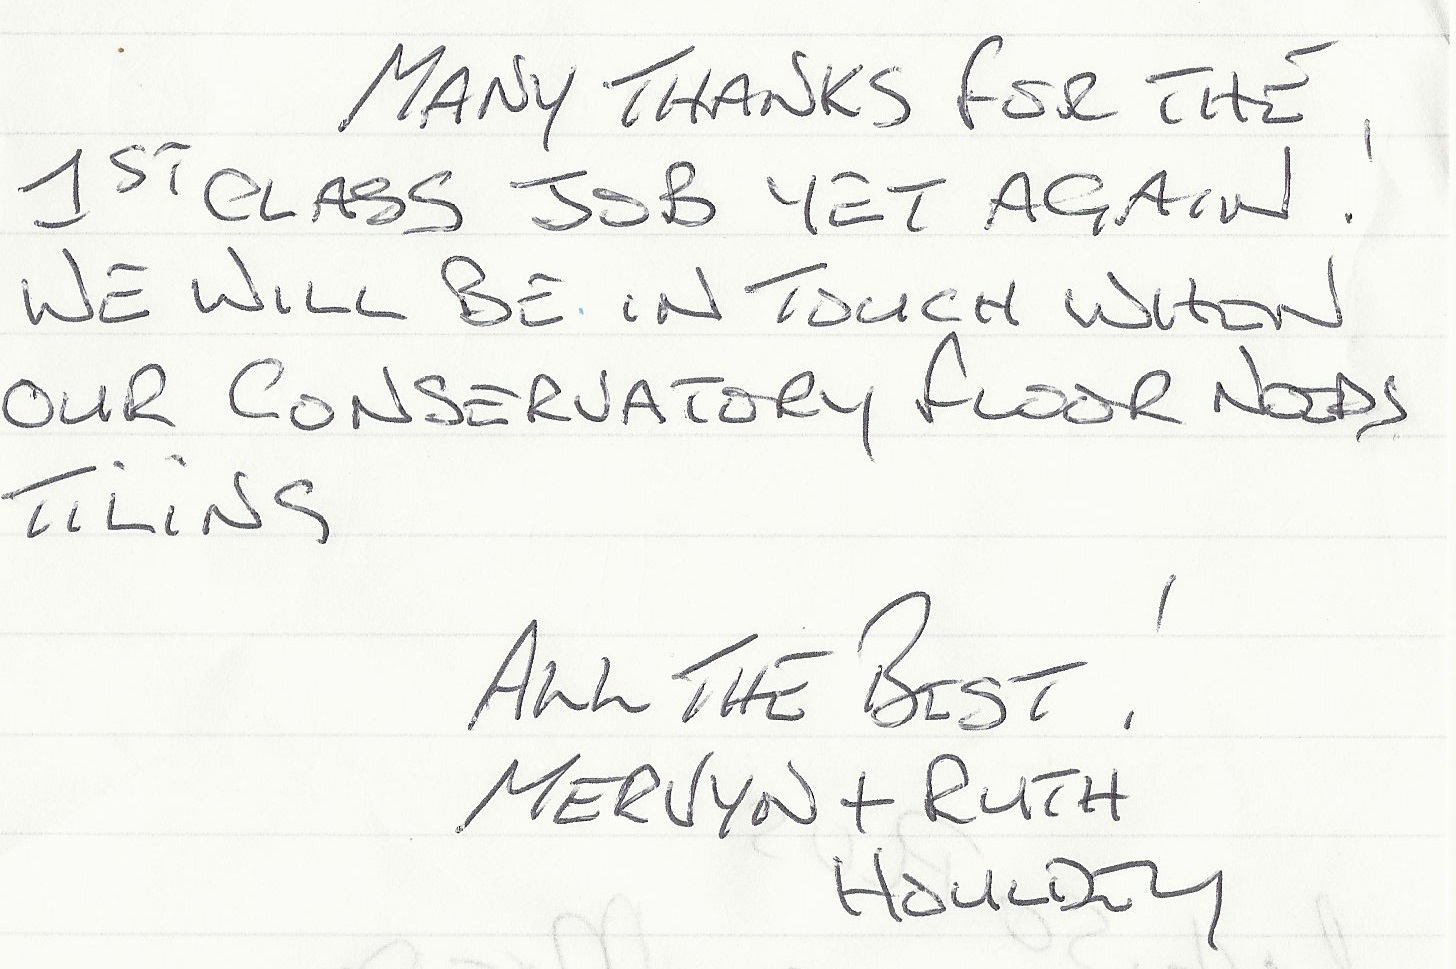 MANY THANKS FOR THE
1ST CLASS JOB YET AGAIN!
WE WILL BE IN TOUCH WHEN
OUR CONSERVATORY FLOOR NEEDS
TILING
ALL THE BEST!
MERVYN + RUTH
HOULDEY